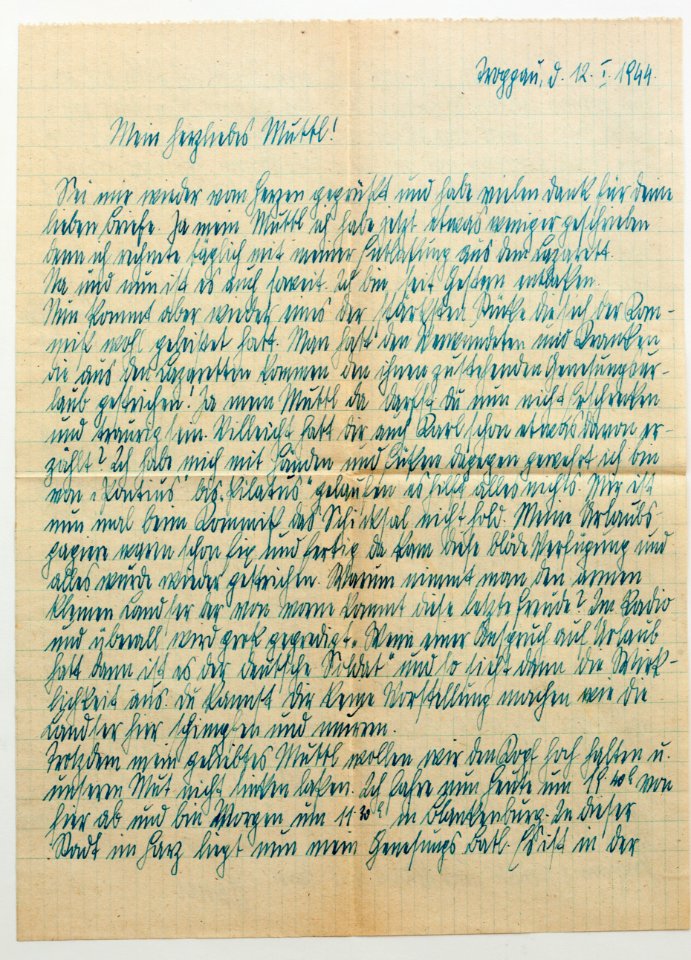 Troppau, d. 12. I. 1944.
Mein herzliebes Muttl!
Sei mir wieder vom Herzen gegrüßt und habe vielen dank für deine
lieben briefe. Ja mein Muttl ich habe jetzt etwas weniger geschrieben
denn ich rechnete täglich mit meiner Entlaßung aus dem Lazarett.
Na und nun ist es auch soweit. Ich bin seit gestern entlaßen.
Nun kommt aber wieder eines der stärksten Stücke die sich der Kom-
miß wohl geleistet hatt. Man hatt den Verwundeten und Kranken
die aus den Lazaretten kommen den ihnen zustehenden Genesungsur-
laub gestrichen! Ja mein Muttl da darfst du nun nicht erschrecken
und traurig sein. Villeicht hatt dir auch Karl schon etwas davon er-
zählt? Ich habe mich mit Händen und Füßen dagegen gewehrt ich bin
von "Pontius" bis "Pilatus" gelaufen es hilft alles nichts. Mir ist
nun mal beim Kommiß das Schiksal nicht hold. Meine Urlaubs-
papiere waren schon fix und fertig da kam diese blöde Verfügung und
alles wurde wieder gestrichen. Warum nimmt man den armen
kleinen Landser der von vorne kommt diese letzte Freude? Im Radio
und überall wird groß gepredigt "Wenn einer Anspruch auf Urlaub
hatt dann ist es der deutsche Soldat" und so sieht dann die Wirk-
lichkeit aus. du kannst dir keine Vorstellung machen wie die
Landser hier schimpfen und murren.
Trotzdem mein geliebtes Muttl wollen wir den Kopf hoch halten u.
unseren Mut nicht sinken laßen. Ich fahre nun heute um von
hier ab und bin Morgen um in blankenburg. In dieser
Stadt im Harz liegt nun mein Genesungs batl. Es ist in der